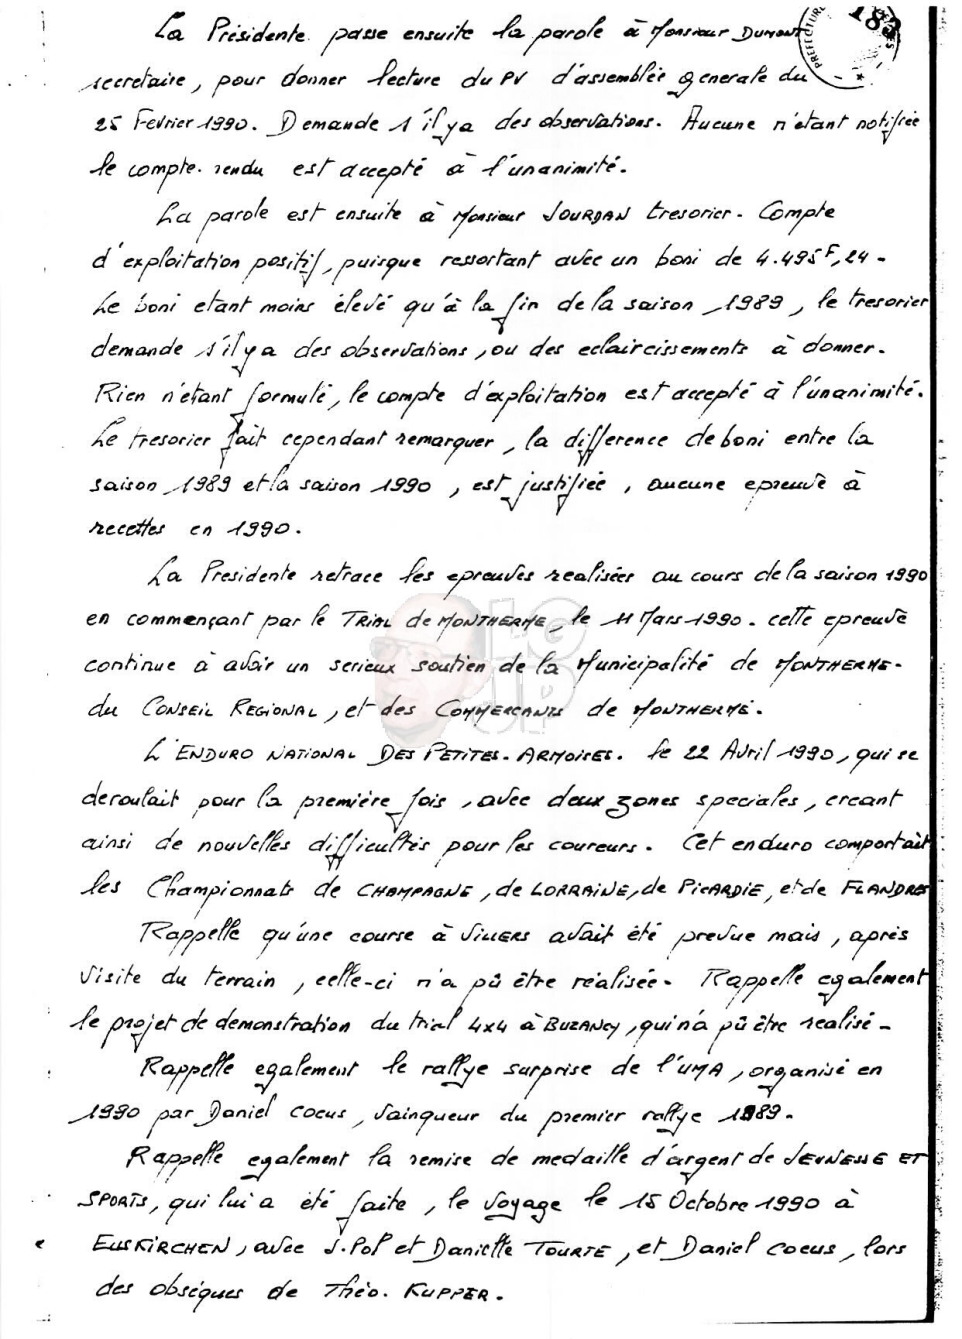 La Présidente passe ensuite la parole à Monsieur DUMONT
secretaire, pour donner lecture du PV d'assemblée generale du
25 Fevrier 1990. Demande s'il y a des observations. Aucune n'étant notifiée
le compte. rendu est accepté à l'unanimité.
La parole est ensuite à Monsieur JOURDAN tresorier. Compte
d'exploitation positif, puisque ressortant avec un boni de 4.495F,24 -
Le boni etant moins élevé qu'à la fin de la saison 1989, le tresorier
demande s'il y a des observations, ou des eclaircissements à donner.
Rien n'étant formulé, le compte d'exploitation est accepté à l'unanimité.
Le tresorier fait cependant remarquer, la difference de boni entre la
saison 1989 et la saison 1990, est justifiée, aucune epreuve à
recettes en 1990.
La Presidente retrace les epreuves realisées au cours de la saison 1990
en commençant par le TRIAL de MONTHERME, le 11 Mars 1990. cette epreuve
continue à avoir un serieux soutien de la Municipalité de MONTHERME.
du CONSEIL REGIONAL, et des COMMERCANTS de MONTHERMÉ.
L'ENDURO NATIONAL DES PETITES. ARMOISES. le 22 Avril 1990, qui se
deroulait pour la première fois, avec deux zones speciales, creant
ainsi de nouvelles difficultés pour les coureurs. Cet enduro comportait
les Championnats de CHAMPAGNE, de LORRAINE, de PICARDIE, et de FLANDRES
Rappelle qu'une course à VILLERS avait été prevue mais, après
visite du terrain, celle-ci n'a pû être réalisée. Rappelle egalement
le projet de demonstration du trial 4x4 à BUZANCY, qui n'a pû être realisé -
Rappelle egalement le rallye surprise de l'UMA, organisé en
1990 par Daniel COEUS, vainqueur du premier rallye 1989.
Rappelle egalement la remise de medaille d'argent de JEUNESSE ET
SPORTS, qui lui a été faite, le voyage le 15 Octobre 1990 à
EUSKIRCHEN, avec J. Pol et Danielle TOURTE, et Daniel COEUS, lors
des obséques de Théo. KUPPER.